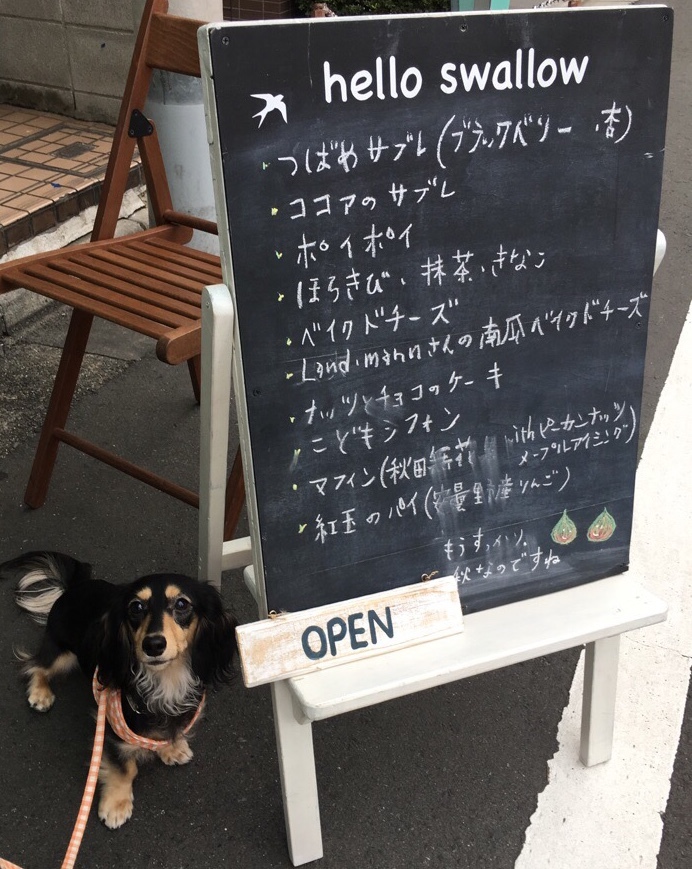 hello swallow
つばめサブレ(ブラックベリー・杏)
ココアのサブレ
ポイポイ
ほろきび・抹茶・きなこ
ベイクドチーズ
Land.mannさんの南瓜ベイクドチーズ
ナッツとチョコのケーキ
こどもシフォン
マフィン(秋田 with ピーカンナッツ
メープルアイシング)
紅玉のパイ(産りんご)
もうすっかり、
秋なのですね
OPEN